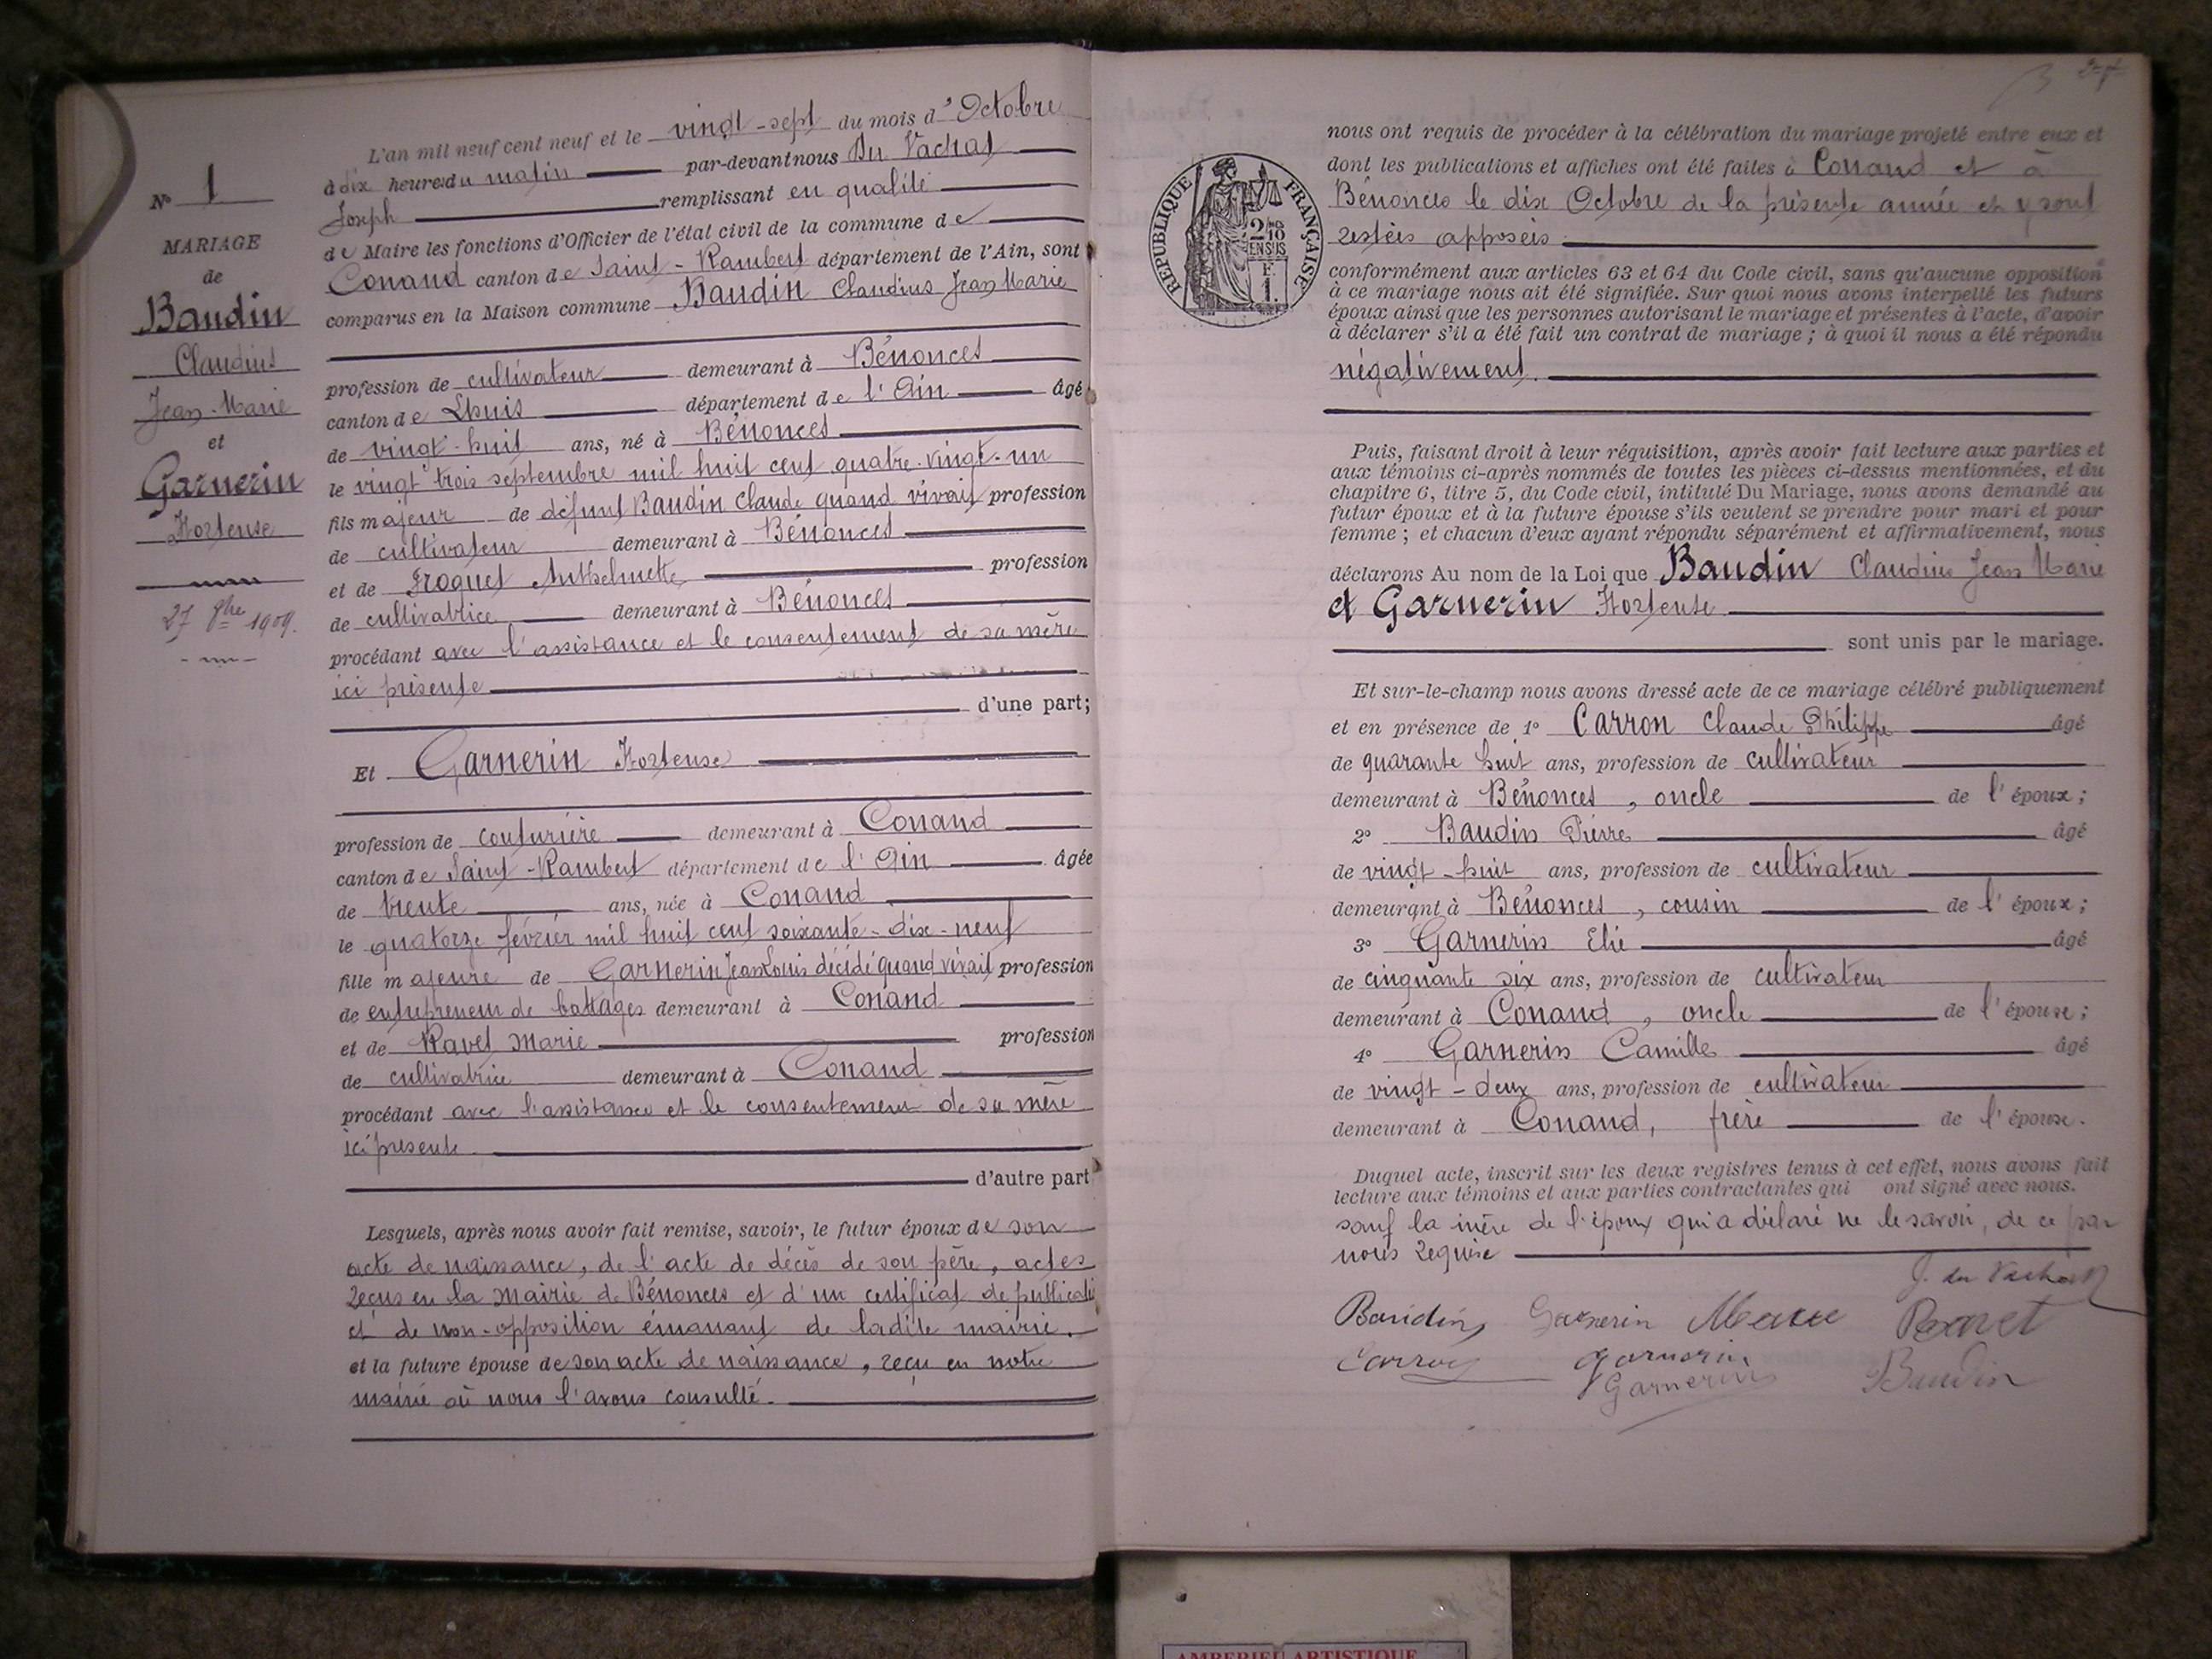 N° 1
MARIAGE
de
Baudin
Claudius
Jean-Marie
et
Garnerin
Hortense
27 8bre 1909.
L'an mil neuf cent neuf et le vingt-sept du mois d'Octobre
à dix heures du matin par-devant nous Du Vachat
Joseph remplissant en qualité
de Maire les fonctions d'Officier de l'état civil de la commune de
Conand canton de Saint-Rambert département de l'Ain, sont
comparus en la Maison commune Baudin Claudius Jean Marie
profession de cultivateur demeurant à Bénonces
canton de Lhuis département de l'Ain âgé
de vingt-huit ans, né à Bénonces
le vingt trois septembre mil huit cent quatre-vingt-un
fils majeur de défunt Baudin Claude quand vivait profession
de cultivateur demeurant à Bénonces
et de Froquet Anthelmette profession
de cultivatrice demeurant à Bénonces
procédant avec l'assistance et le consentement de sa mère
ici présente
d'une part;
Et Garnerin Hortense
profession de couturière demeurant à Conand
canton de Saint-Rambert département de l'Ain âgée
de trente ans, née à Conand
le quatorze février mil huit cent soixante-dix-neuf
fille majeure de Garnerin Jean Louis décédé quand vivait profession
de entrepreneur de battages demeurant à Conand
et de Ravet Marie profession
de cultivatrice demeurant à Conand
procédant avec l'assistance et le consentement de sa mère
ici présente.
d'autre part
Lesquels, après nous avoir fait remise, savoir, le futur époux de son
acte de naissance, de l'acte de décès de son père, actes
reçus en la mairie de Bénonces et d'un certificat de publicati
et de non-opposition émanant de ladite mairie.
et la future épouse de son acte de naissance, reçu en notre
mairie où nous l'avons consulté.
RÉPUBLIQUE FRANÇAISE
2/10
EN SUS
F.
1.
nous ont requis de procéder à la célébration du mariage projeté entre eux et
dont les publications et affiches ont été faites à Conand et à
Bénonces le dix Octobre de la présente année et y sont
restées apposées
conformément aux articles 63 et 64 du Code civil, sans qu'aucune opposition
à ce mariage nous ait été signifiée. Sur quoi nous avons interpellé les futurs
époux ainsi que les personnes autorisant le mariage et présentes à l'acte, d'avoir
à déclarer s'il a été fait un contrat de mariage ; à quoi il nous a été répondu
négativement.
Puis, faisant droit à leur réquisition, après avoir fait lecture aux parties et
aux témoins ci-après nommés de toutes les pièces ci-dessus mentionnées, et du
chapitre 6, titre 5, du Code civil, intitulé Du Mariage, nous avons demandé au
futur époux et à la future épouse s'ils veulent se prendre pour mari et pour
femme ; et chacun d'eux ayant répondu séparément et affirmativement, nous
déclarons Au nom de la Loi que Baudin Claudius Jean Marie
et Garnerin Hortense
sont unis par le mariage.
Et sur-le-champ nous avons dressé acte de ce mariage célébré publiquement
et en présence de 1° Carron Claude Philippe âgé
de quarante huit ans, profession de cultivateur
demeurant à Bénonces, oncle de l'époux;
2° Baudin Pierre âgé
de vingt-huit ans, profession de cultivateur
demeurant à Bénonces, cousin de l'époux;
3° Garnerin Elie âgé
de cinquante six ans, profession de cultivateur
demeurant à Conand, oncle de l'épouse;
4° Garnerin Camille âgé
de vingt-deux ans, profession de cultivateur
demeurant à Conand, frère de l'épouse.
Duquel acte, inscrit sur les deux registres tenus à cet effet, nous avons fait
lecture aux témoins et aux parties contractantes qui ont signé avec nous.
sauf la mère de l'époux qui a déclaré ne le savoir, de ce par
nous requise
J. du Vachat
Baudin Garnerin Ravet
Carron Garnerin
Garnerin Baudin
AMBERIEU ARTISTIQUE